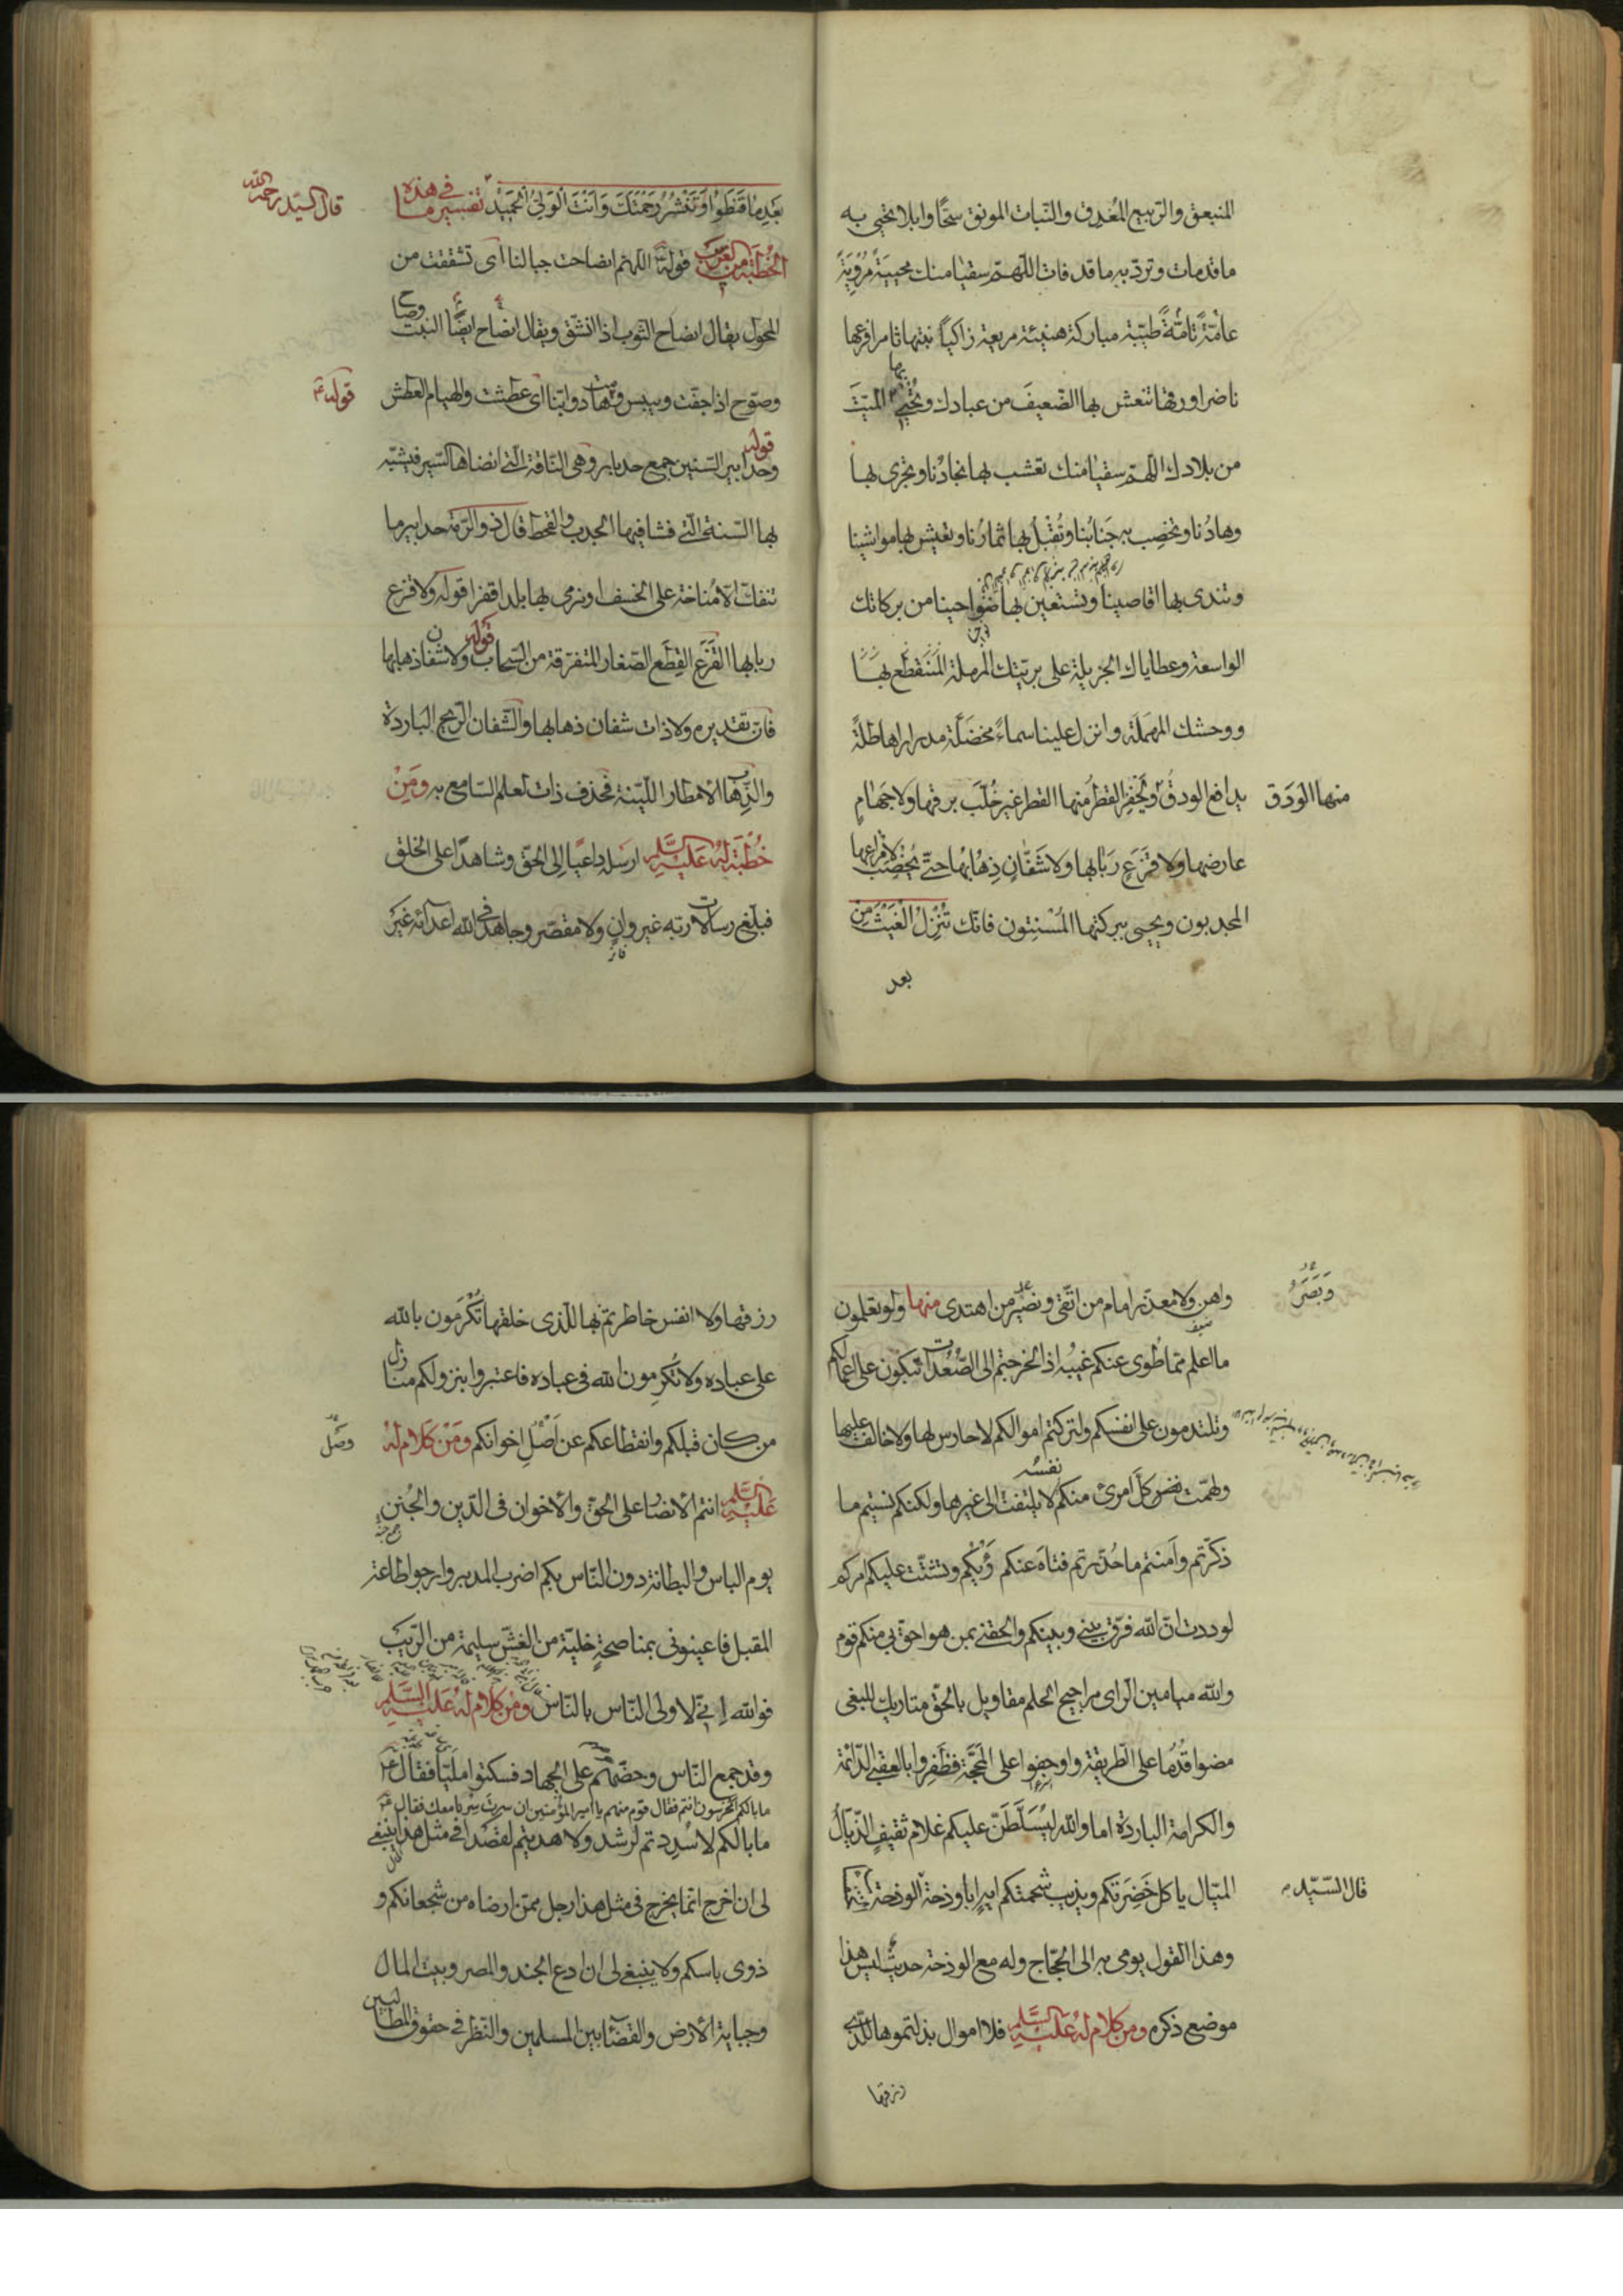 المنبعق والربيع المُغدِق والنّبات المونق سَحًّا وابلا تحيى به
ما قد مات وتردّ به ما قد فات اللّهمّ سقيا منك محييةً مُرْوِيَةً
عامّةً تامّةً طيّبة مباركة هنيئة مريعة زاكيًا نبتها ثامرا فرعها
ناضرا ورقها تنعش بها الضّعيفَ من عبادك وتُحْيِي بها الميّتَ
من بلادك اللّهمّ سقيا منك تعشب بها نجادُنا وتجرى بها
وهادُنا وتخصِب به جَنابُنا وتُقْبِلُ بها ثمارُنا وتعيش بها مواشينا
وتندى بها اقاصينا وتستعين بها ضواحينا من بركاتك
الواسعة وعطاياك الجزيلة على بريّتك المرملة المنقطع بها
ووحشك المهمَلَة وانزل علينا سماءً مخضَلّة مدرارا هاطلةً
يدافع الودقُ منها الوَدَق ويَحْفِز القطرُ منها القطر غير خُلَّب برقها ولا جهامٍ
عارضها ولا قَزَعٍ رَبَابها ولا شَفَّانٍ ذِهَابُها حتّى يُخصِبَ لامراعها
المجدبون ويحيى ببركتها المُسْنِتون فانّك تُنْزِلُ الْغَيْثَ مِنْ
بعد
قال السيّد رحمه الله
بَعْدِ مَا قَنَطُوا وَتَنْشُرُ رَحْمَتَكَ وَاَنْتَ الْوَلِىُّ الْحَمِيْدُ تفسير ما فى هذه
الخُطْبَة من الغريب قوله اللّهمّ انصاحت جبالنا اى تشققت من
المحول يقال انصاح الثوب اذا انشقّ ويقال انصاح ايضًا النبت وصاح
وصوّح اذا جفّت ويبس وهامت دوابّنا اى عطشت والهيام العطش
قوله
قوله وحدابير السّنين جمع حدبار وهى النّاقة الّتى انضاها السّير فشبّه
بها السّنة الّتى فشا فيها الجدب والقحط قال ذو الرّمة حدابير ما
تنفكّ الّا مُناخة على الخسف او نرمى بها بلدا قفرا قوله ولا قزع
ربابها القَزَع القِطَع الصّغار المتفرّقة من السّحاب قوله ولا شفان ذهابها
فانّ تقديره ولا ذات شفان ذهابها والشّفان الرّيح الباردة
والذِّهاب الامطار اللّيّنة فحذف ذات لعلم السّامع به ومَِنْ
خُطْبَة لَهُ عَلَيْهِ السَّلَم ارسله داعيًا اِلى الحقّ وشاهدًا على الخلق
فبلّغ رسالات ربّه غير وانٍ ولا مقصّر وجاهد فى الله اعداءَه غَيْرَ
واهن ولا معذّر امام من اتّقى وبصر من اهتدى منها ولو تعلمون
وَبَصَرُ
ما اعلم ممّا طُوى عنكم غيبُه اذا لخرجتم الى الصّعُدات تبكون على اعمالكم
وتلتدمون على انفسكم ولتركتم اموالكم لا حارس لها ولا خالف عليها
ولهمّت نفس كلّ امرئ منكم نفسُه لا يلتفت الى غيرها ولكنكم نسيتم ما
ذكّرتم وأمنتم ما حُذّرتم فتاه عنكم رَأيُكُم وتشتّت عليكم امركم
لوددت انّ الله فرّق بينى وبينكم والحقنى بمن هو احقّ بى منكم قوم
والله ميامين الرّاى مراجيح الحلم مقاويل بالحقّ متاريك للبغى
مضوا قُدُمًا على الطّريقة واوجفوا على المَحَجّة فظَفِروا بالعقبى الدّائمة
والكرامة الباردة اما والله لَيُسَلَّطَنّ عليكم غلام ثقيفٍ الذّيّالُ
الميّال ياكل خَضِرَتكم ويذيب شحمتكم ايهٍ ابا وذحة الوذحة
قال السّيّد
وهذا القول يومى به الى الحجّاج وله مع الوذحة حديث ليس هذا
موضع ذكره ومن كلام لهُ عَلَيْهِ السَّلَم فلا اموال بذلتموها للّذى
رزقها
رزقها ولا انفس خاطرتم بها للّذى خلقها تُكْرَمون بالله
على عباده ولا تُكْرِمون الله فى عباده فاعتبروا بنزولكم منازل
من كان قبلكم وانقطاعكم عن اَصْلِ اخوانكم ومَنْ كَلامٍ لَهُ
عَلَيْهِ السَّلَم انتم الانصار على الحقّ والاخوان فى الدّين والجُنَن
يوم الباس والبطانة دون النّاس بكم اضرب المدبر وارجو طاعة
المقبل فاعينونى بمناصحةٍ خليّة من الغشّ سليمة من الرّيب
فوالله اِنّى لاولى النّاس بالنّاس ومن كلام لهُ عَلَيْهِ السَّلَم
وقد جمع النّاس وحضّهم على الجهاد فسكتوا مليّا فقال
ما بالكم امخرسون انتم فقال قوم منهم يا امير المؤمنين ان سرتَ سِرنا معك فقال
ما بالكم لا سُدِدتم لرشد ولا هديتم لقصد افى مثل هذا ينبغى
لى ان اخرج انّما يخرج فى مثل هذا رجل ممّن ارضاه من شجعانكم و
ذوى باسكم ولا ينبغى لى ان ادع الجند والمصر وبيت المال
وجباية الارض والقضاء بين المسلمين والنّظر فى حقوق المطالبين